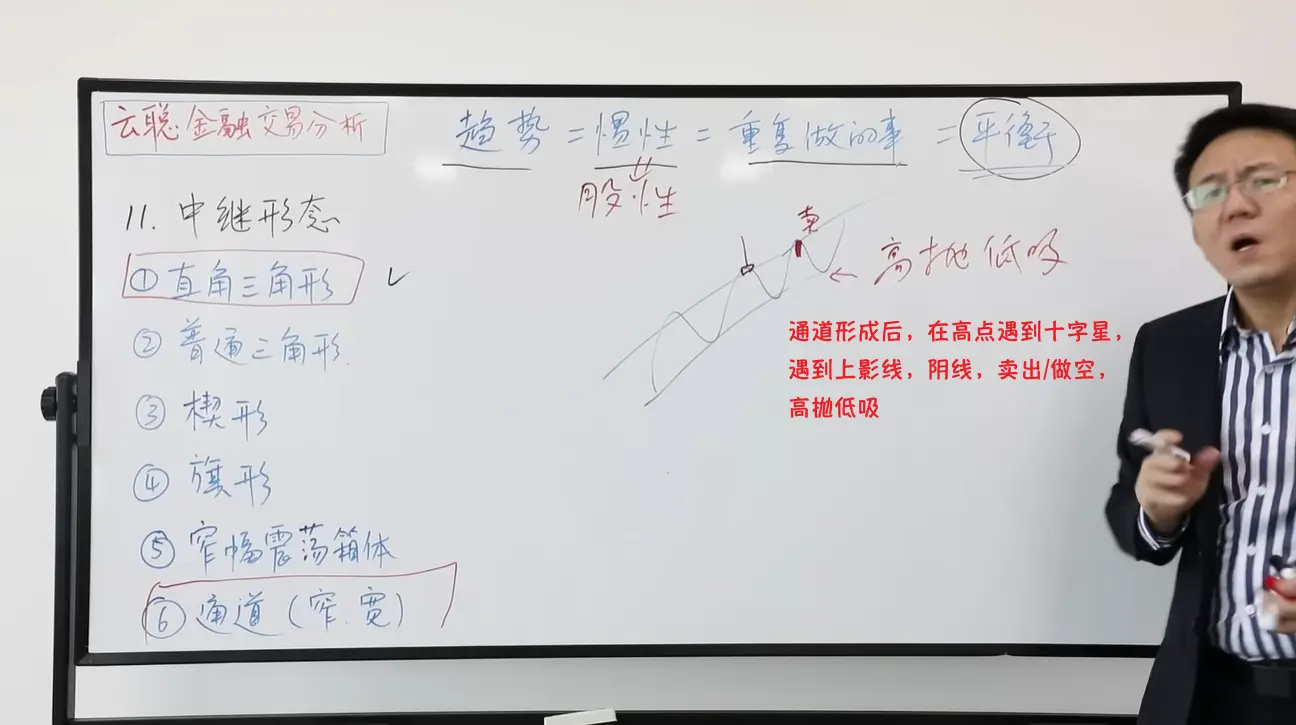 云聪金融交易分析
趋势=惯性=重复做的事=平衡
股性
11.中继形态
①直角三角形
②普通三角形
③楔形
④旗形
⑤窄幅震荡箱体
⑥通道(窄.宽)
卖
高抛低吸
通道形成后，在高点遇到十字星，
遇到上影线，阴线，卖出/做空，
高抛低吸